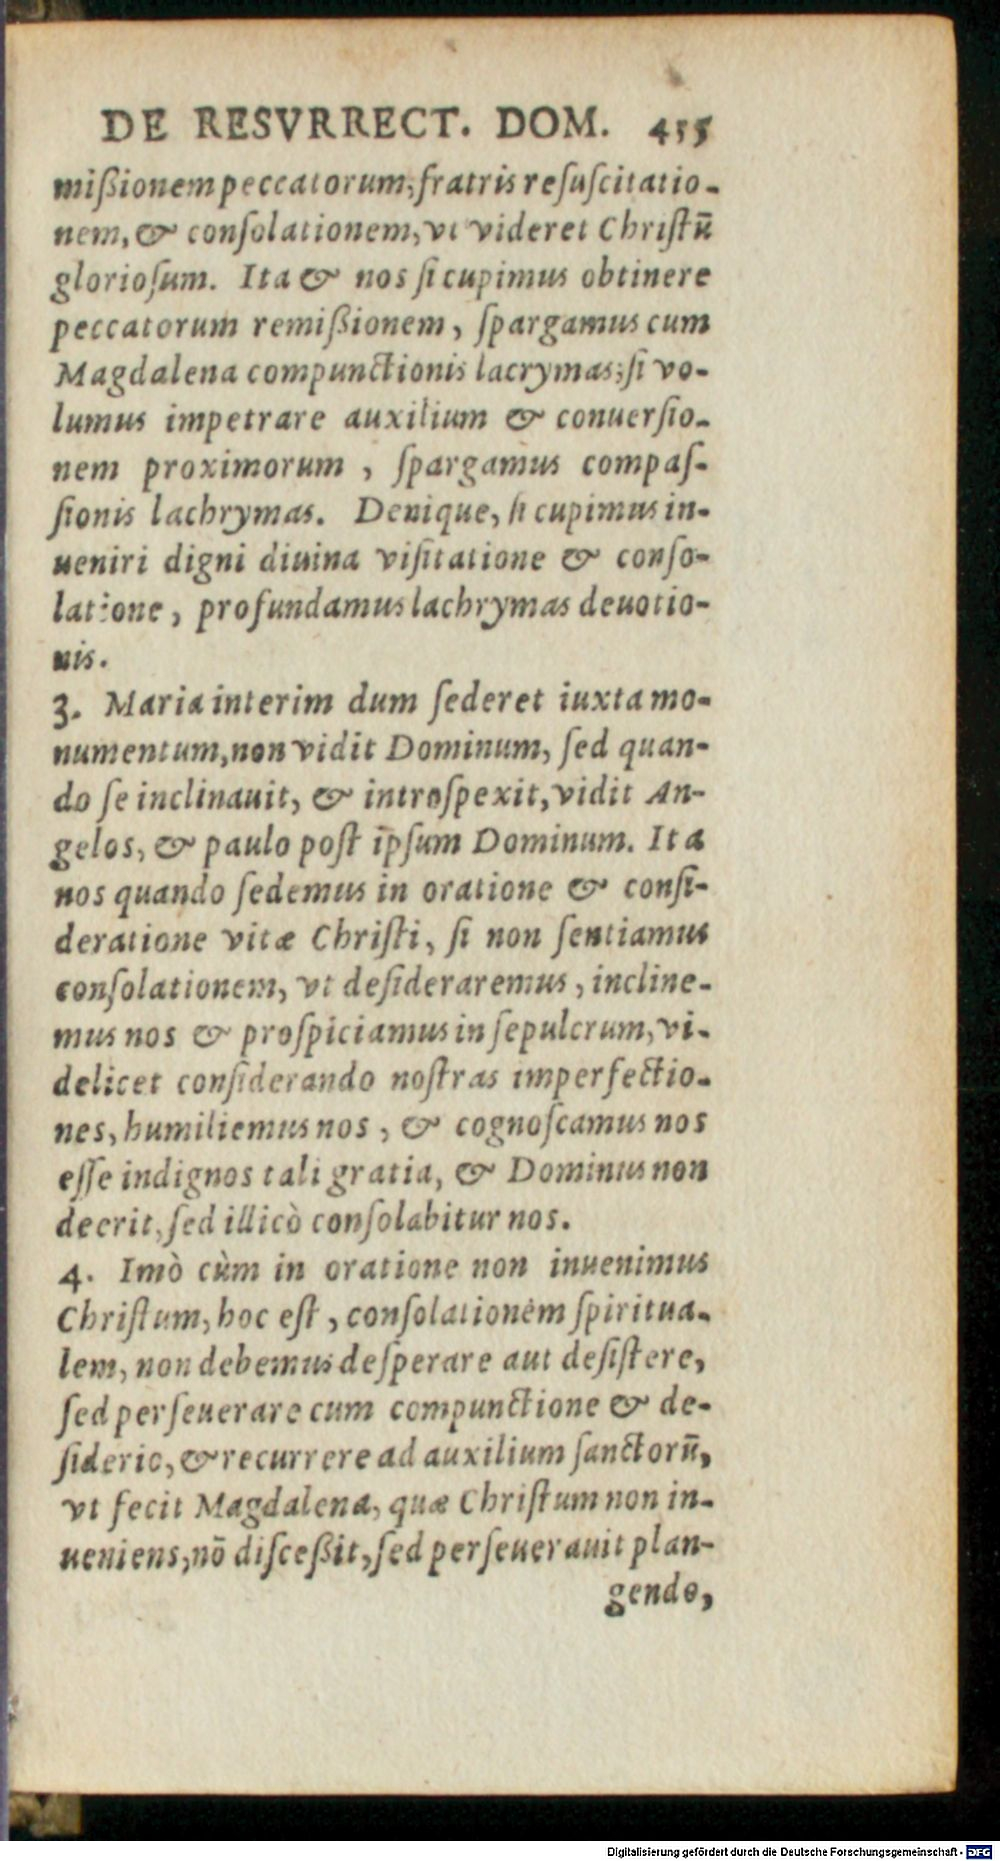 DE RESVRRECT. DOM. 455
mißionem peccatorum, fratris reſuſcitatio-
nem, & conſolationem, vt videret Chriſtū
glorioſum. Ita & nos ſi cupimus obtinere
peccatorum remißionem, ſpargamus cum
Magdalena compunctionis lacrymas; ſi vo-
lumus impetrare auxilium & conuerſio-
nem proximorum, ſpargamus compaſ-
ſionis lachrymas. Denique, ſi cupimus in-
ueniri digni diuina viſitatione & conſo-
latione, profundamus lachrymas deuotio-
nis.
3. Maria interim dum ſederet iuxta mo-
numentum, non vidit Dominum, ſed quan-
do ſe inclinauit, & introſpexit, vidit An-
gelos, & paulo poſt ipſum Dominum. Ita
nos quando ſedemus in oratione & conſi-
deratione vitæ Chriſti, ſi non ſentiamus
conſolationem, vt deſideraremus, incline-
mus nos & proſpiciamus in ſepulcrum, vi-
delicet conſiderando noſtras imperfectio-
nes, humiliemus nos, & cognoſcamus nos
eſſe indignos tali gratia, & Dominus non
deerit, ſed illicò conſolabitur nos.
4. Imò cùm in oratione non inuenimus
Chriſtum, hoc eſt, conſolationem ſpiritua-
lem, non debemus deſperare aut deſiſtere,
ſed perſeuerare cum compunctione & de-
ſiderio, & recurrere ad auxilium ſanctorū,
vt fecit Magdalena, quæ Chriſtum non in-
ueniens, nō diſceßit, ſed perſeuerauit plan-
gendo,
Digitalisierung gefördert durch die Deutsche Forschungsgemeinschaft - DFG